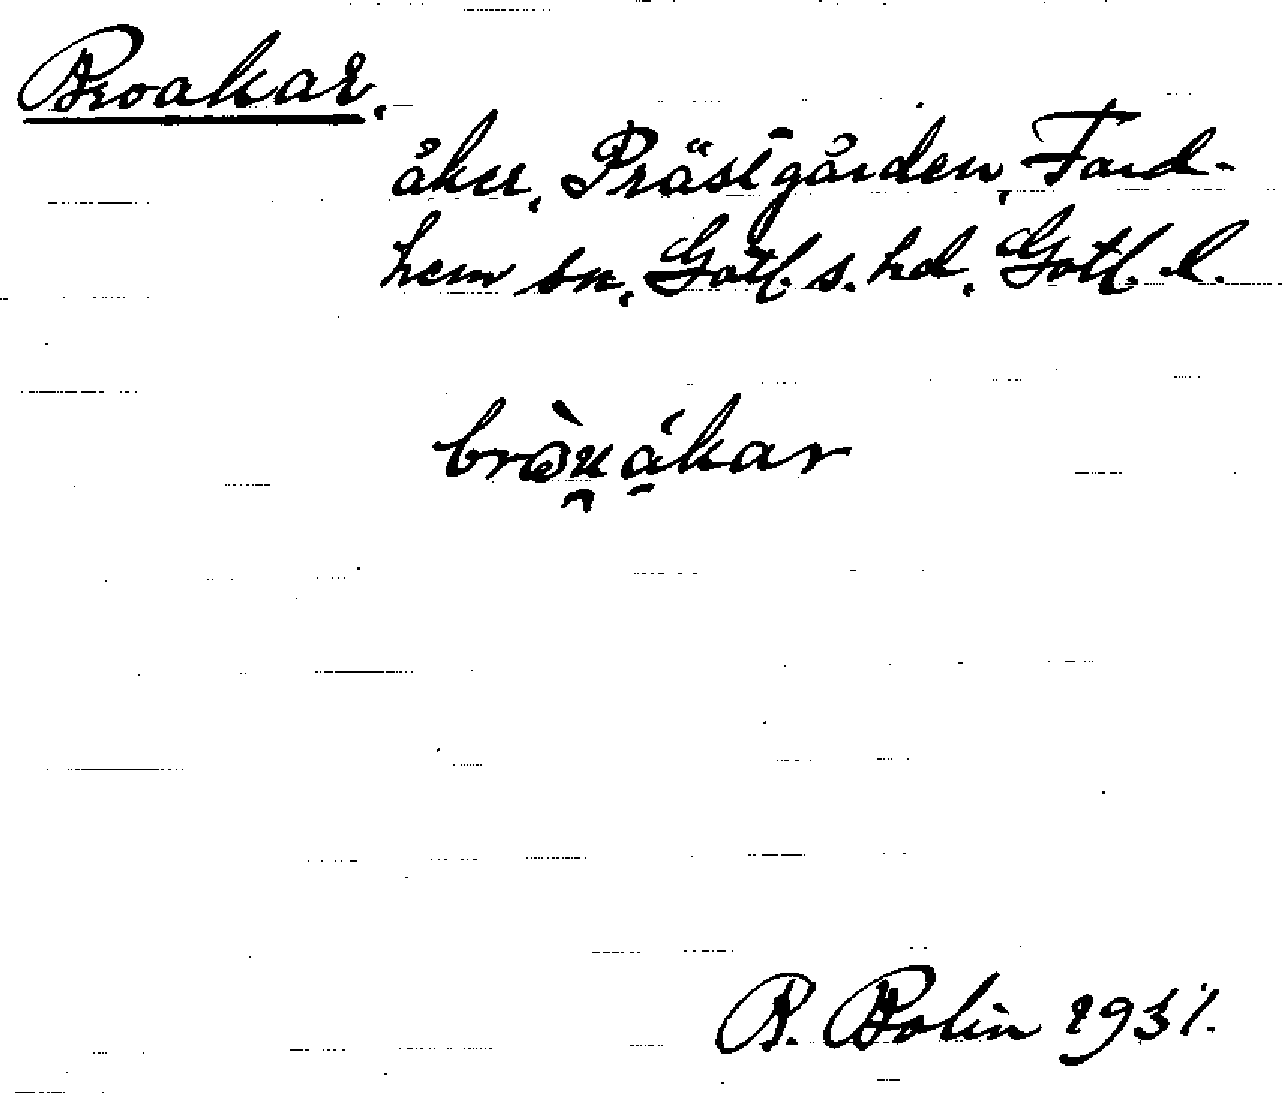 Broakar.
åker, Prästgården, Fard-
hem sn, Gotl. s. hd, Gotl. l.
bròu̯ákar
R. Bolin 1931.